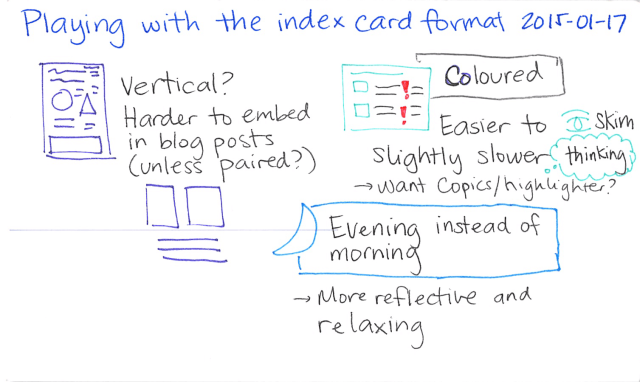 Playing with the index card format 2015-01-17
Vertical?
Harder to embed
in blog posts
(unless paired?)
Coloured
Easier to skim
slightly slower thinking
→ want Copics/highlighter?
Evening instead of
morning
→ More reflective and
relaxing